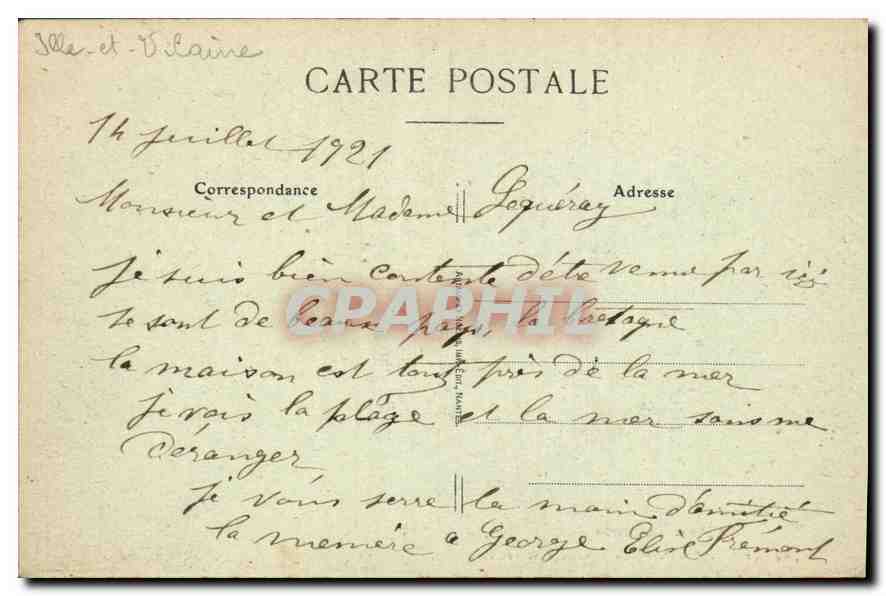 Ille-et-Vilaine
CARTE POSTALE
14 juillet 1921
Correspondance
Adresse
Monsieur et Madame Lequéray
je suis bien contente d'éte venue par ici
se sont de beaux pays, la bretagne
la maison est tout près de la mer
je vois la plage et la mer sans me
déranger
je vous serre la main d'amitié
la memère a George Elise Frémont
CPAPHIL
IMP. ÉDIT., NANTES